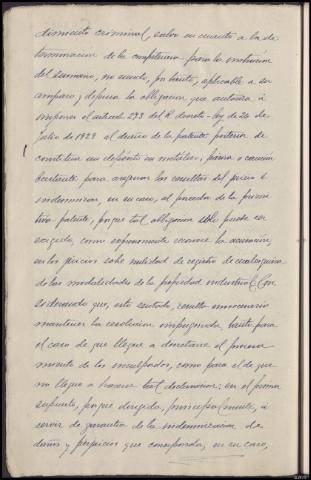 dimiento criminal, salvo en cuanto a la de-
terminacion de la competencia para la instruccion
del sumario, no siendo, por tanto, aplicable a su
amparo, y defensa la obligacion que autoriza a
imponer el articulo 273 del R. decreto-ley de 26 de
Julio de 1929 al dueño de la patente posterior de
constituir un depósito en metálico, fianza o caución
bastante para asegurar las resultas del juicio e
indemnizar, en su caso, al poseedor de la prime
tiva patente, porque tal obligacion sólo puede ser
exigida, como expresamente reconoce la acusación,
en los juicios sobre nulidad de registro de cualesquiera
de las modalidades de la propiedad industrial. Con
siderando que, esto sentado, resulta innecesario
mantener la resolucion impugnada, tanto para
el caso de que llegue a decretarse el procesa
miento de los inculpados, como para el de que
no llegue a hacerse tal declaracion: en el primer
supuesto, porque dirigida, principalmente, a
servir de garantía de la indemnizacion de
daños y perjuicios que corresponda, en su caso,